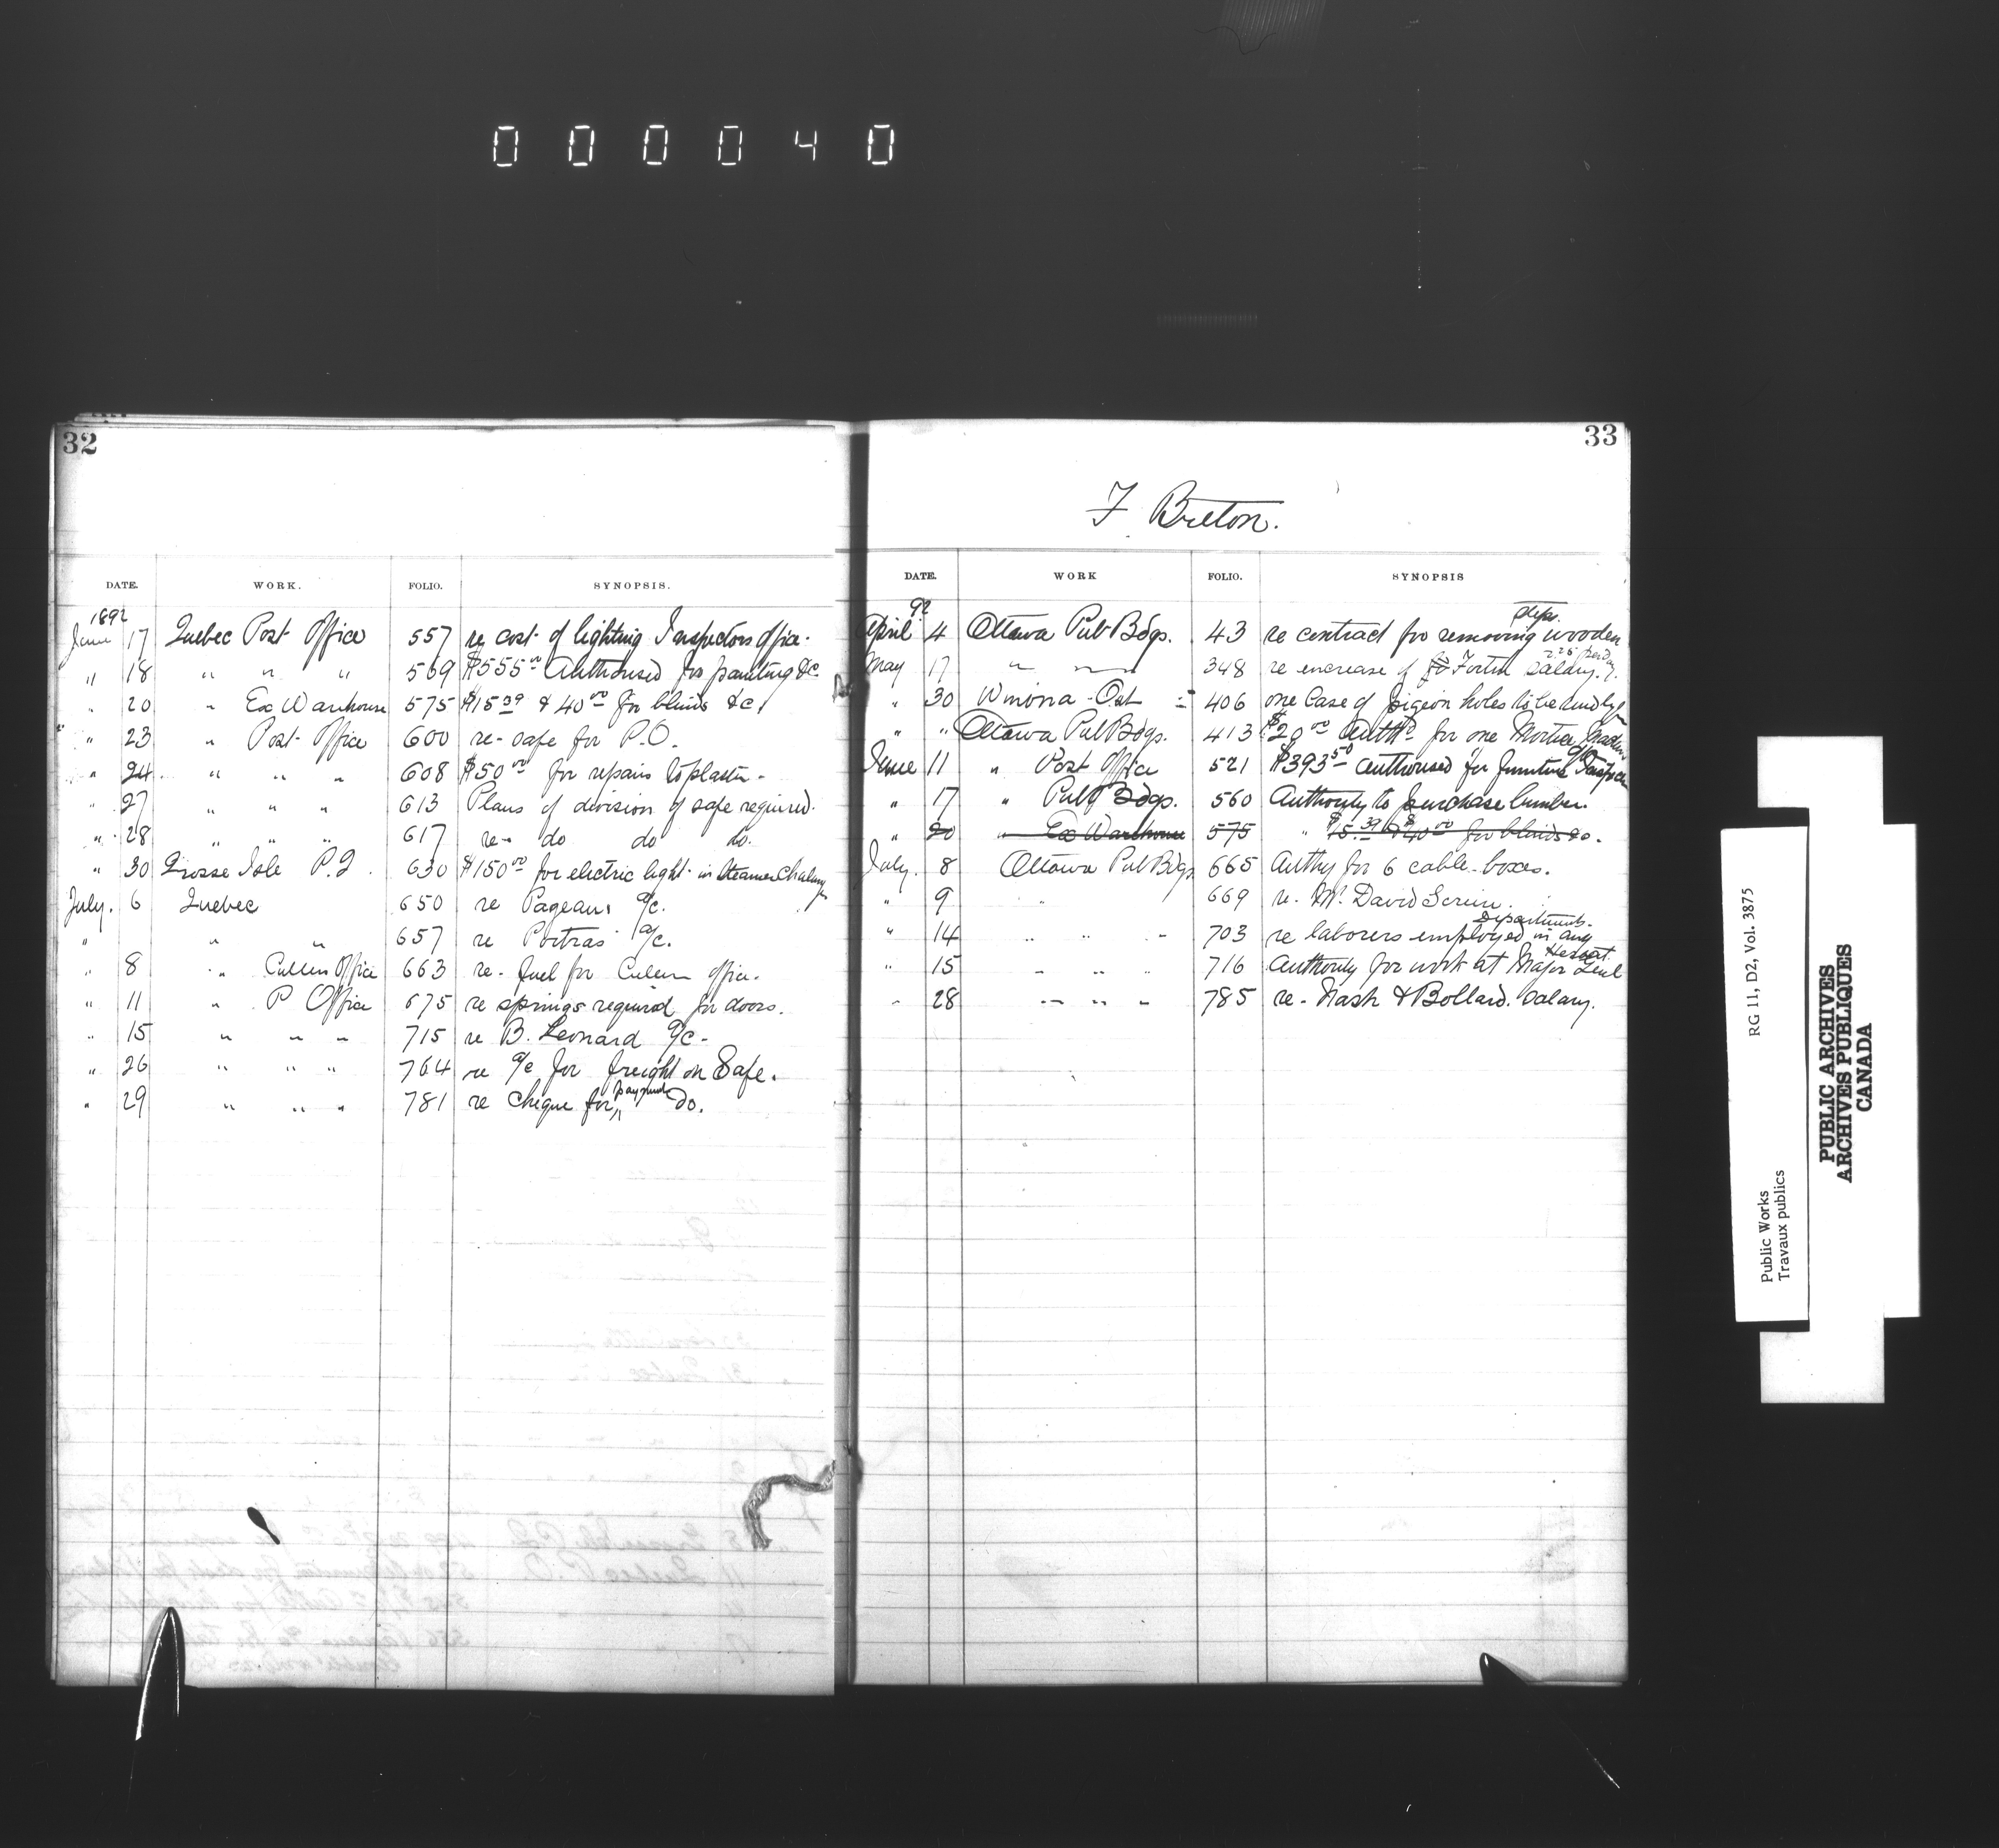 000040
32
DATE. WORK. FOLIO. SYNOPSIS.
1892
June 17 Quebec Post Office 557 re cost of lighting Inspectors office.
" 18 " " " 569 $555.00 Authorised for painting &c.
" 20 " Ex Warehouse 575 $15.39 & 40.00 for blinds &c.
" 23 " Post Office 600 re- safe for P.O.
" 24. " " " 608 $50.00 for repairs to plaster -
" 27 " " " 613 Plans of division of safe required.
" 28 " " " 617 re- do do do.
" 30 Grosse Isle P.Q. 630 $150.00 for electric light in Steamer
July. 6 Quebec 650 re Pageau a/c.
" " " 657 re Poitras a/c.
" 8 " Cullers Office 663 re- fuel for Cullers office.
" 11 " P Office 675 re springs required for doors.
" 15 " " " 715 re B. Leonard a/c -
" 26 " " " 764 re a/c for freight on Safe.
" 29 " " " 781 re cheque for payment do.
33
F Breton.
DATE. WORK FOLIO. SYNOPSIS
92
April 4 Ottawa Pub Bdgs. 43 re contract for removing wooden steps.
May 17 " " 348 re increase of Fortin salary. 2.25 per day
" 30 Winona - Ont 406 one Case of pigeon holes to be
" " Ottawa Pub Bdgs. 413 $20.00 Authd for one Mortice
June 11 " Post Office 521 $393.50 authorised for furniture
" 17 " Pub Bdgs. 560 Authority to purchase lumber.
" 20 " Ex Warehouse 575 " $15.39 & $40.00 for blinds &c.
July. 8 Ottawa Pub Bdgs 665 Authy for 6 cable-boxes.
" 9 " 669 re- Mr. David
" 14 " " " 703 re laborers employed in any Departments.
" 15 " " " 716 Authority for work at Major Genl
" 28 " " " 785 re- Nash & Bollard. Salary.
RG 11, D2, Vol. 3875
Public Works
Travaux publics
PUBLIC ARCHIVES
ARCHIVES PUBLIQUES
CANADA